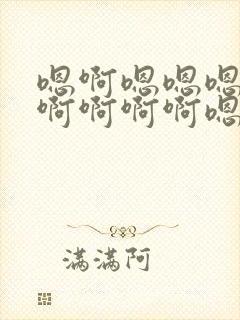 嗯啊嗯嗯嗯
啊啊啊啊嗯
满满阿